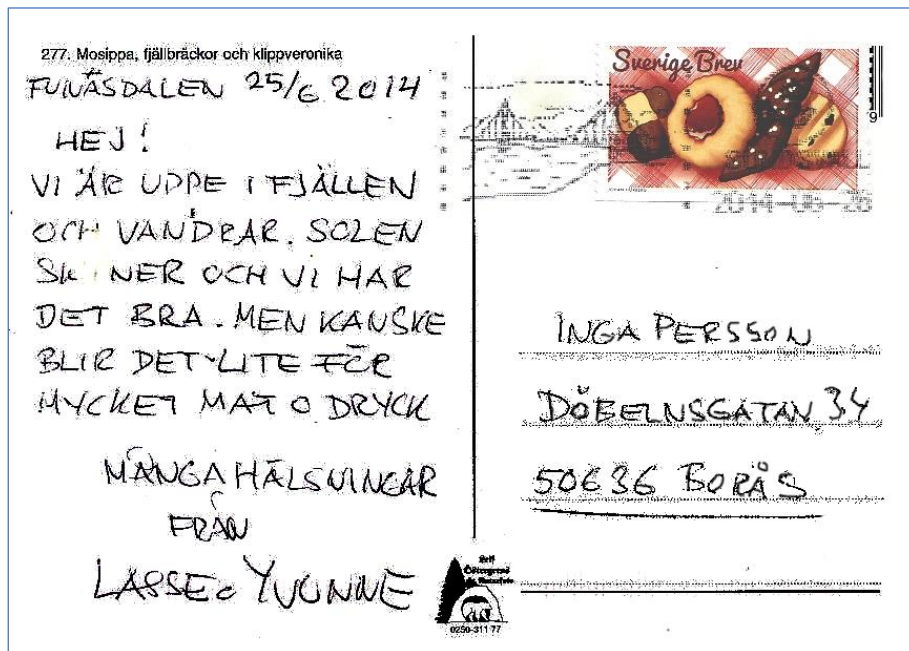 277. Mosippa, fjällbräckor och klippveronika
FUNÄSDALEN 25/6 2014
HEJ!
VI ÄR UPPE I FJÄLLEN
OCH VANDRAR. SOLEN
SKINER OCH VI HAR
DET BRA. MEN KANSKE
BLIR DET LITE FÖR
MYCKET MAT O DRYCK
MÅNGA HÄLSNINGAR
FRÅN
LASSE o YVONNE
Sverige Brev
9
INGA PERSSON
DÖBELNSGATAN 34
50636 BORÅS
0250-311 77